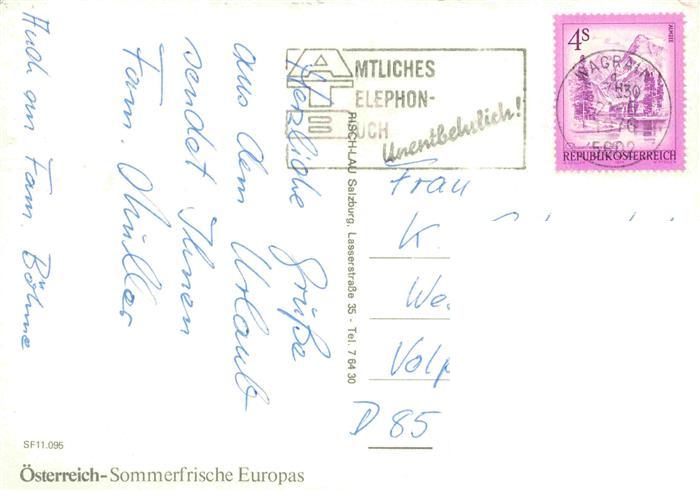 Herzliche Grüße
aus dem Urlaub
sendet Ihnen
Fam. Müller
Auch an Fam. Böhme
SF11.095
Österreich-Sommerfrische Europas
RISCH-LAU Salzburg, Lasserstraße 35 - Tel. 7 64 30
AMTLICHES
TELEPHON-
BUCH
Unentbehrlich!
4S
ALMSEE
REPUBLIK ÖSTERREICH
WAGRAIN
Frau
K.
We
Volp
D 85